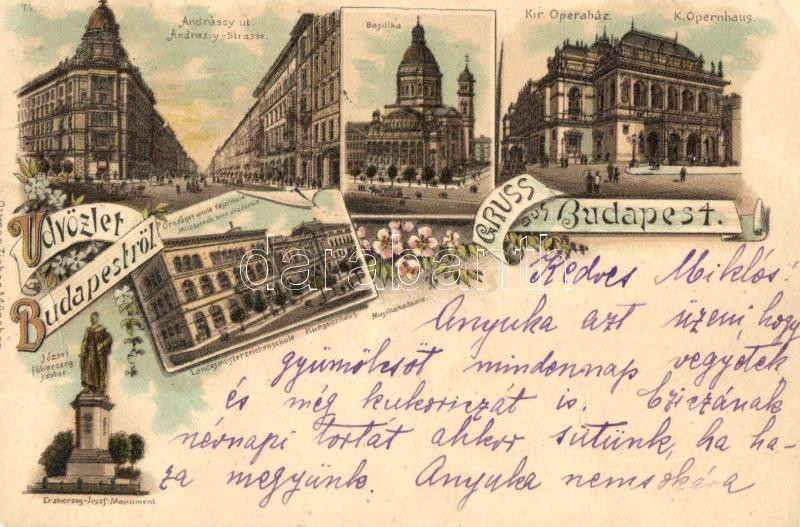 74
Andrássy út.
Andrássy-Strasse.
Basilika
Kir Operaház K. Opernhaus.
Üdvözlet
Budapestről
Országos minta rajziskola
Műcsarnok zene akadémia
Landesmusterzeichenschule Künstlerhaus Musikakademie
GRUSS
aus Budapest.
József
főherczeg
szobor.
Erzherzog-Josef-Monument
darabanth.com
Kedves Miklós!
Anyuka azt üzeni hogy
gyümölcsöt mindennap vegyetek
és még kukoriczát is. Cziczának
névnapi tortát akkor sütünk, ha ha-
za megyünk. Anyuka nemsokára